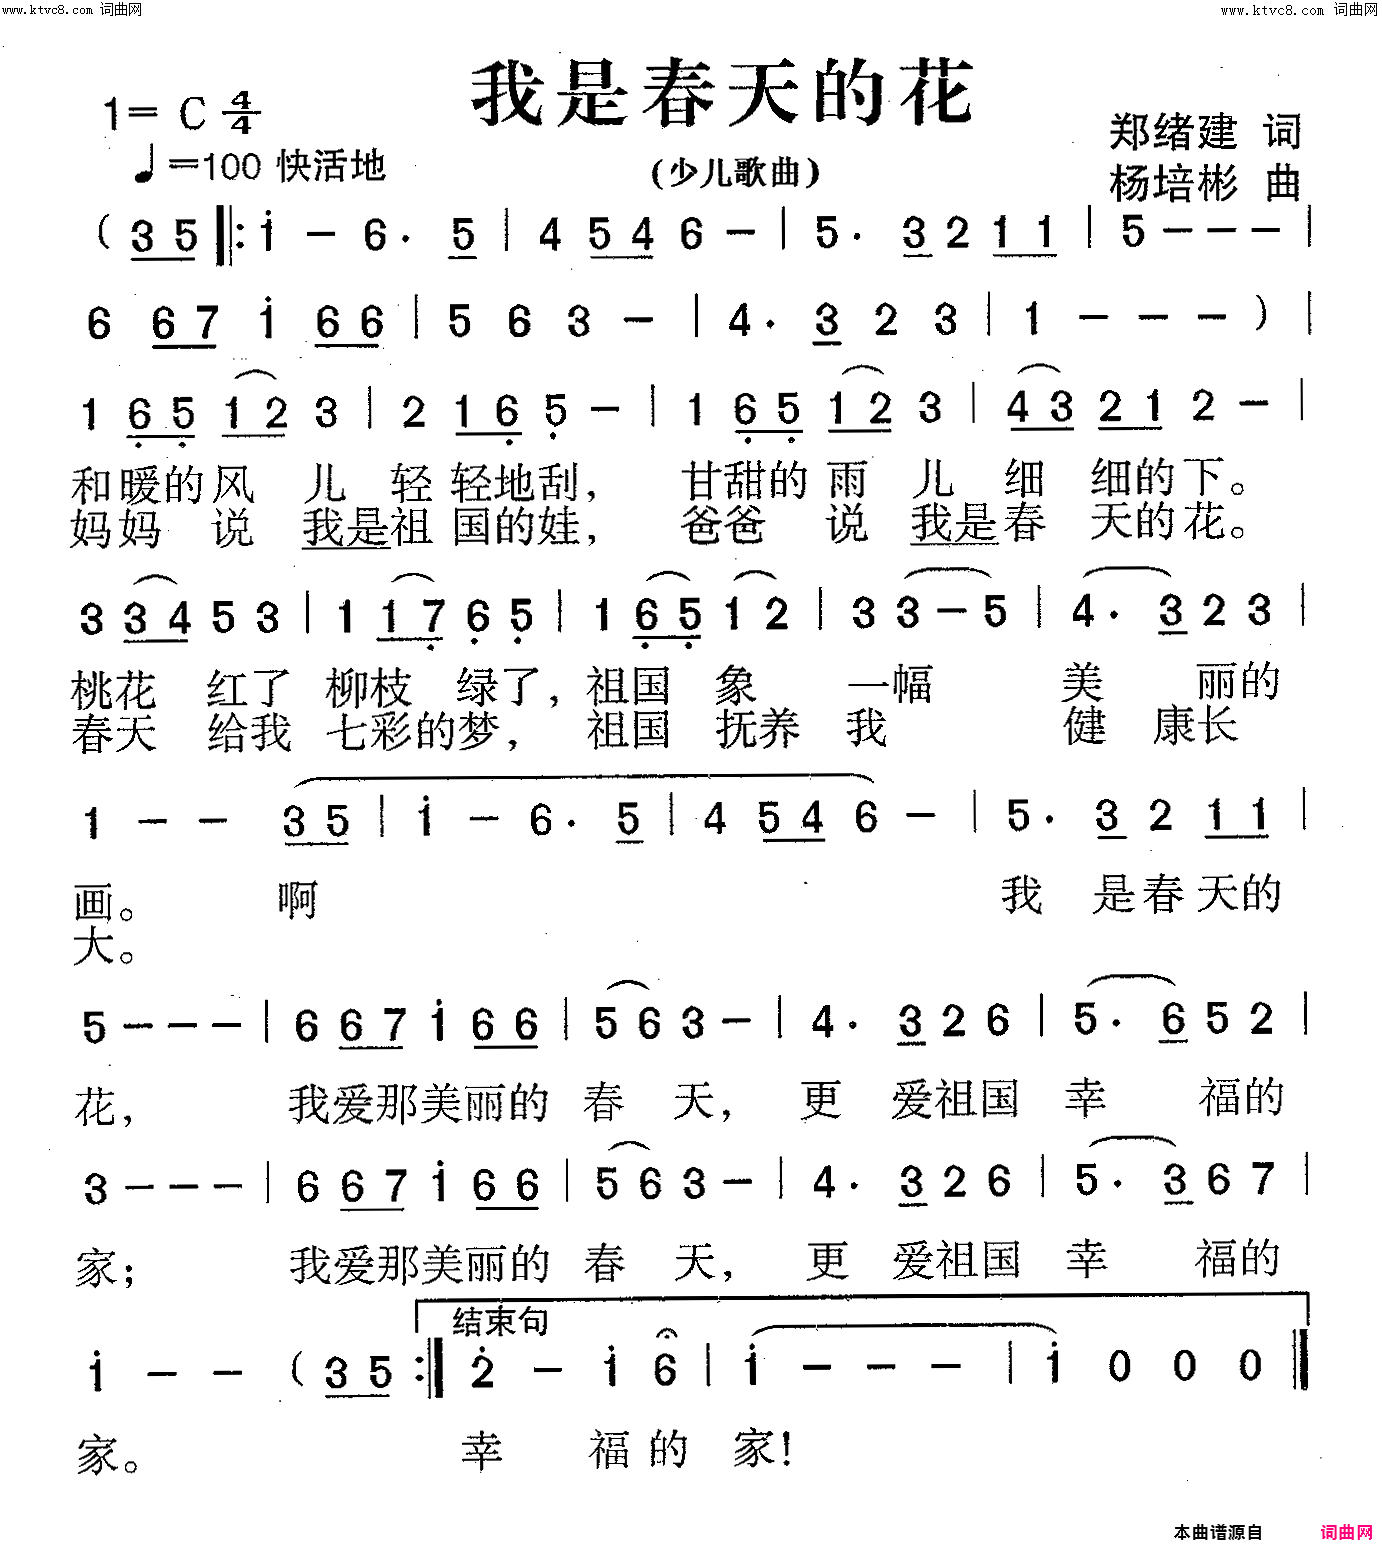 www.ktvc8.com 词曲网 www.ktvc8.com 词曲网
我是春天的花
1= C 4/4
♩=100 快活地
(少儿歌曲)
郑绪建 词
杨培彬 曲
( 3 5 ‖: i - 6 . 5 | 4 5 4 6 - | 5 . 3 2 1 1 | 5 - - - |
6 6 7 i 6 6 | 5 6 3 - | 4 . 3 2 3 | 1 - - - ) |
1 6̣ 5̣ 1 2 3 | 2 1 6̣ 5̣ - | 1 6̣ 5̣ 1 2 3 | 4 3 2 1 2 - |
和暖的风 儿 轻 轻地刮, 甘甜的雨 儿 细 细的下。
妈妈 说 我是祖 国的娃, 爸爸 说 我是春 天的花。
3 3 4 5 3 | 1 1 7̣ 6̣ 5̣ | 1 6̣ 5̣ 1 2 | 3 3 - 5 | 4 . 3 2 3 |
桃花 红了 柳枝 绿了, 祖国 象 一幅 美 丽的
春天 给我 七彩的梦, 祖国 抚养 我 健 康长
1 - - 3 5 | i - 6 . 5 | 4 5 4 6 - | 5 . 3 2 1 1 |
画。 啊 我 是春天的
大。
5 - - - | 6 6 7 i 6 6 | 5 6 3 - | 4 . 3 2 6 | 5 . 6 5 2 |
花, 我爱那美丽的 春 天, 更 爱祖国 幸 福的
3 - - - | 6 6 7 i 6 6 | 5 6 3 - | 4 . 3 2 6 | 5 . 3 6 7 |
家; 我爱那美丽的 春 天, 更 爱祖国 幸 福的
结束句
i - - ( 3 5 :‖ 2̇ - i 6 | i - - - | i 0 0 0 ‖
家。 幸 福 的 家!
本曲谱源自 词曲网